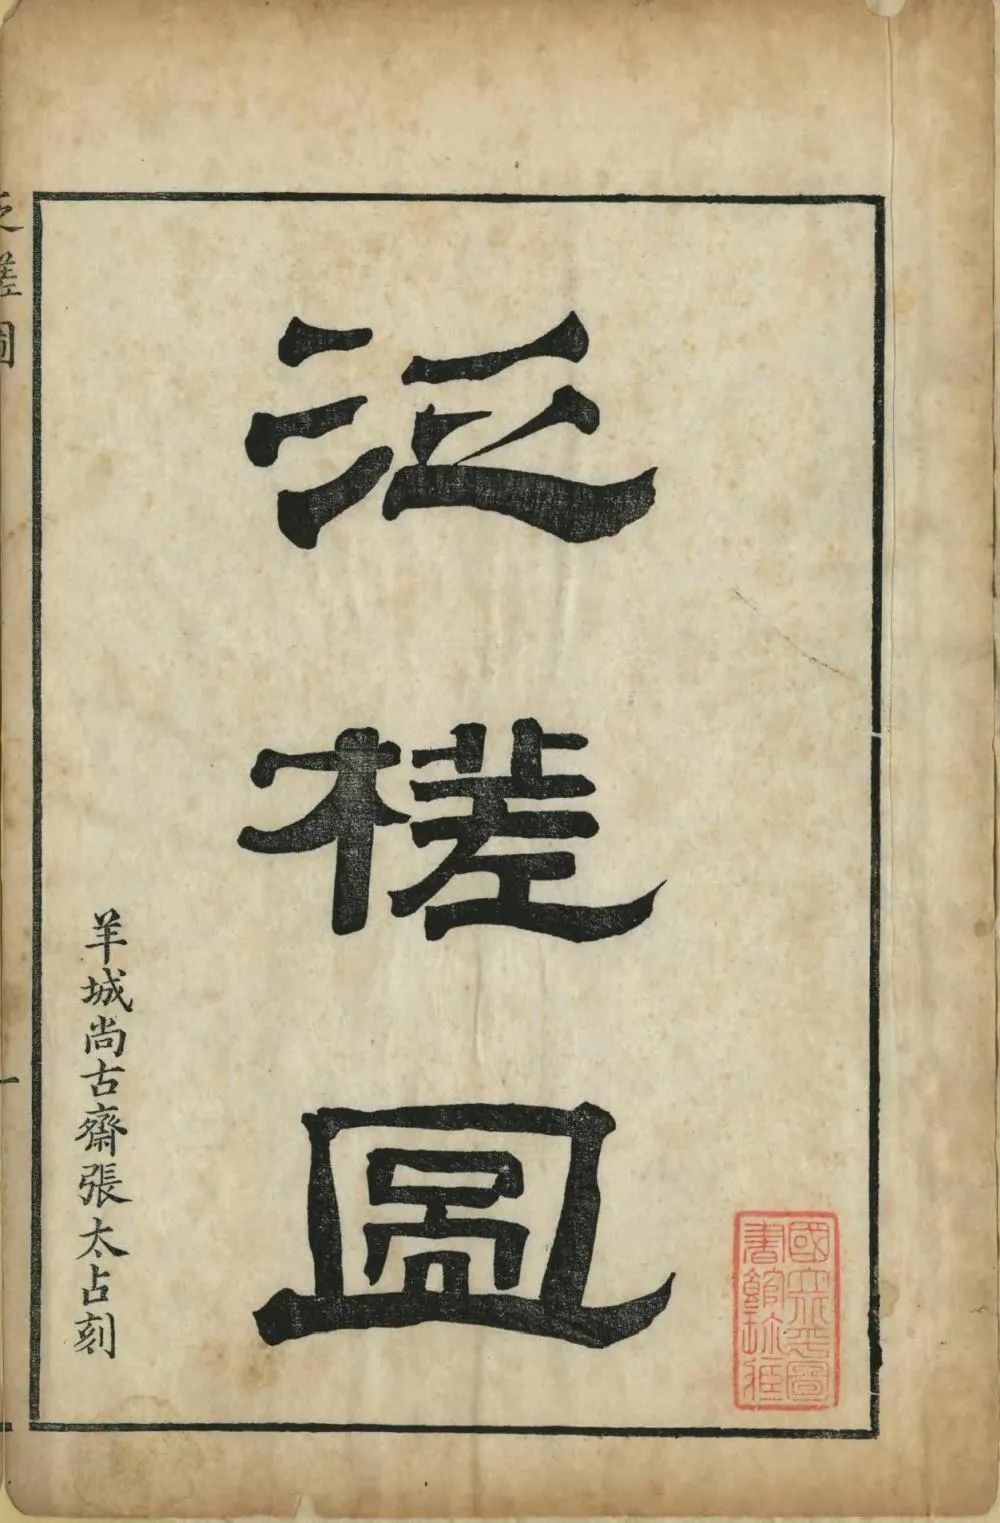 泛槎圖
羊城尚古齋張太占刻
國立北平圖
書館珍藏